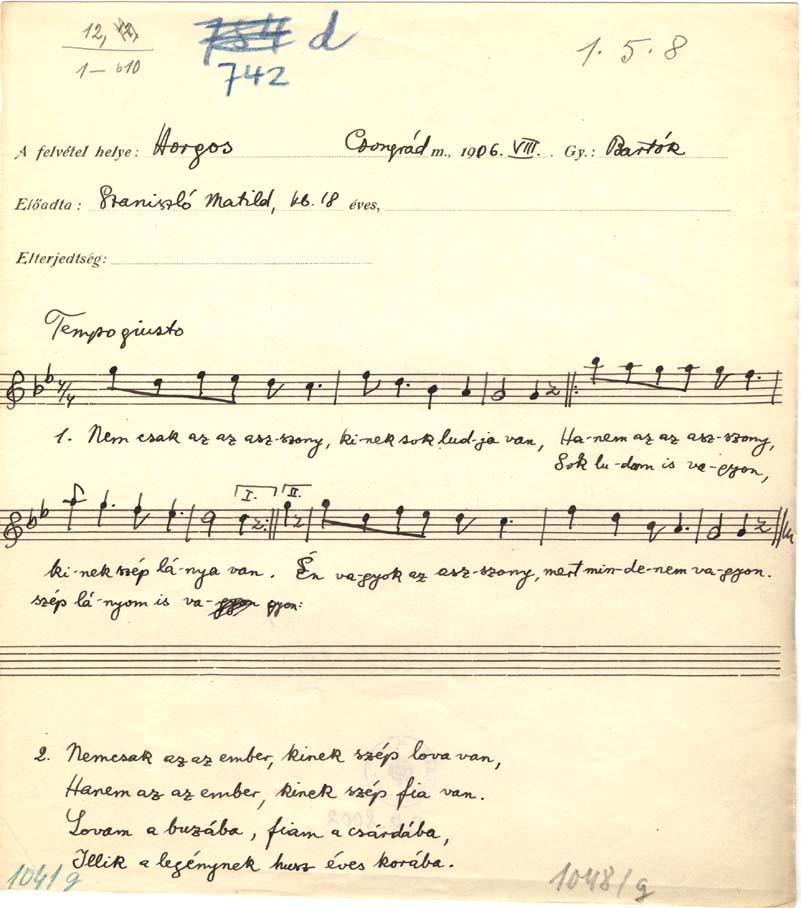 12,
1–610
784 d
742
1.5.8
A felvétel helye: Horgos Csongrád m., 1906. VIII. Gy.: Bartók
Előadta: Szaniszló Matild, kb. 18 éves,
Elterjedtség:
Tempo giusto
4/4
1. Nem csak az az asz-szony, ki-nek sok lud-ja van, Ha-nem az az asz-szony,
Sok lu-dam is va-gyon,
I. II.
ki-nek szép lá-nya van. Én va-gyok az asz-szony, mert min-de-nem va-gyon.
szép lá-nyom is va- gyon:
2. Nemcsak az az ember, kinek szép lova van,
Hanem az az ember, kinek szép fia van.
Lovam a buzába, fiam a csárdába,
Illik a legénynek husz éves korába.
1041/g 1048/g